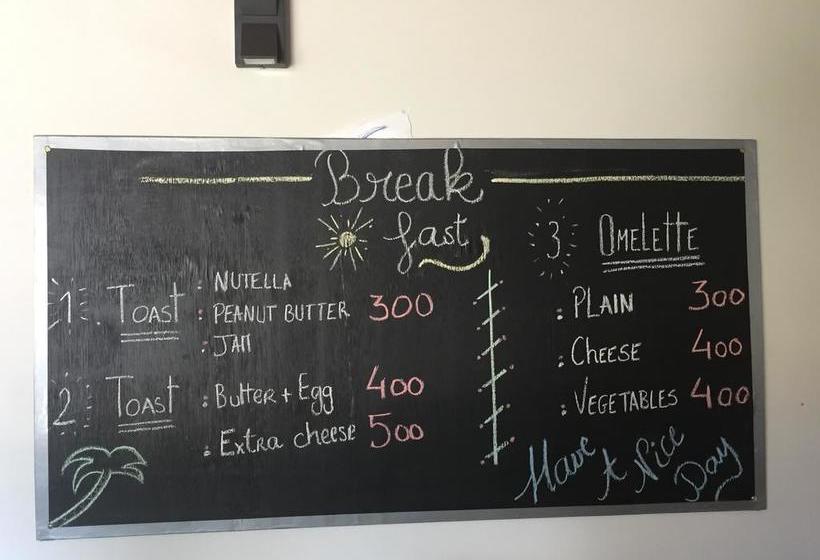 Break
fast
1 Toast : NUTELLA
: PEANUT BUTTER 300
: JAM
2 Toast : Butter + Egg 400
: Extra cheese 500
3 OMELETTE
: PLAIN 300
: CHEESE 400
: VEGETABLES 400
Have A Nice Day